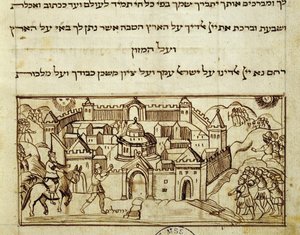 לך ומברכים אותך יתברך שמך בפי כל חי תמיד לעולם ועד ככתוב ואכלת
ושבעת וברכת את יי אדיך על הארץ הטבה אשר נתן לך באי על הארץ
ועל המזון
רחם נא יי אדינו על ישראל עמך ועל ציון משכן כבודך ועל מלכות
ירושלים